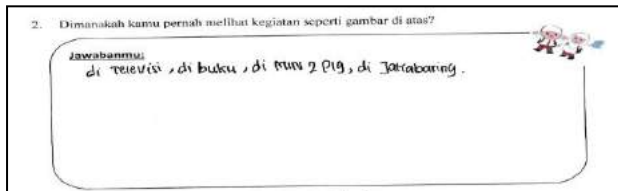 2. Dimanakah kamu pernah melihat kegiatan seperti gambar di atas?
Jawabanmu:
di Televisi, di buku, di MIN 2 Plg, di Jakabaring.